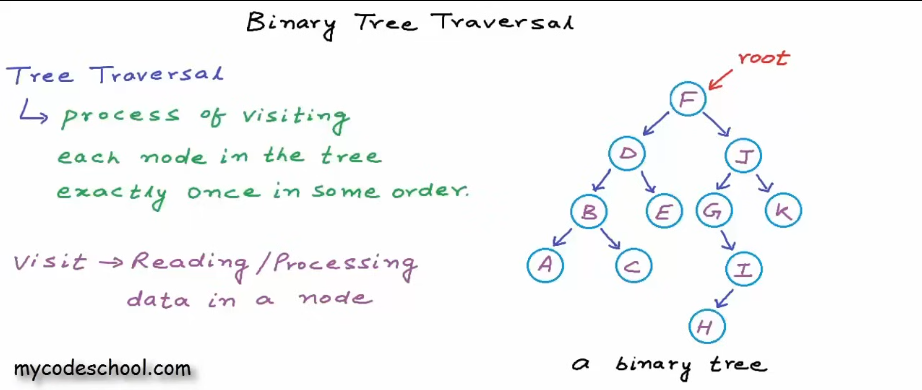 Binary Tree Traversal
Tree Traversal
process of visiting
each node in the tree
exactly once in some order.
Visit → Reading/Processing
data in a node
mycodeschool.com
root
F
D
J
B
E
G
K
A
C
I
H
a binary tree